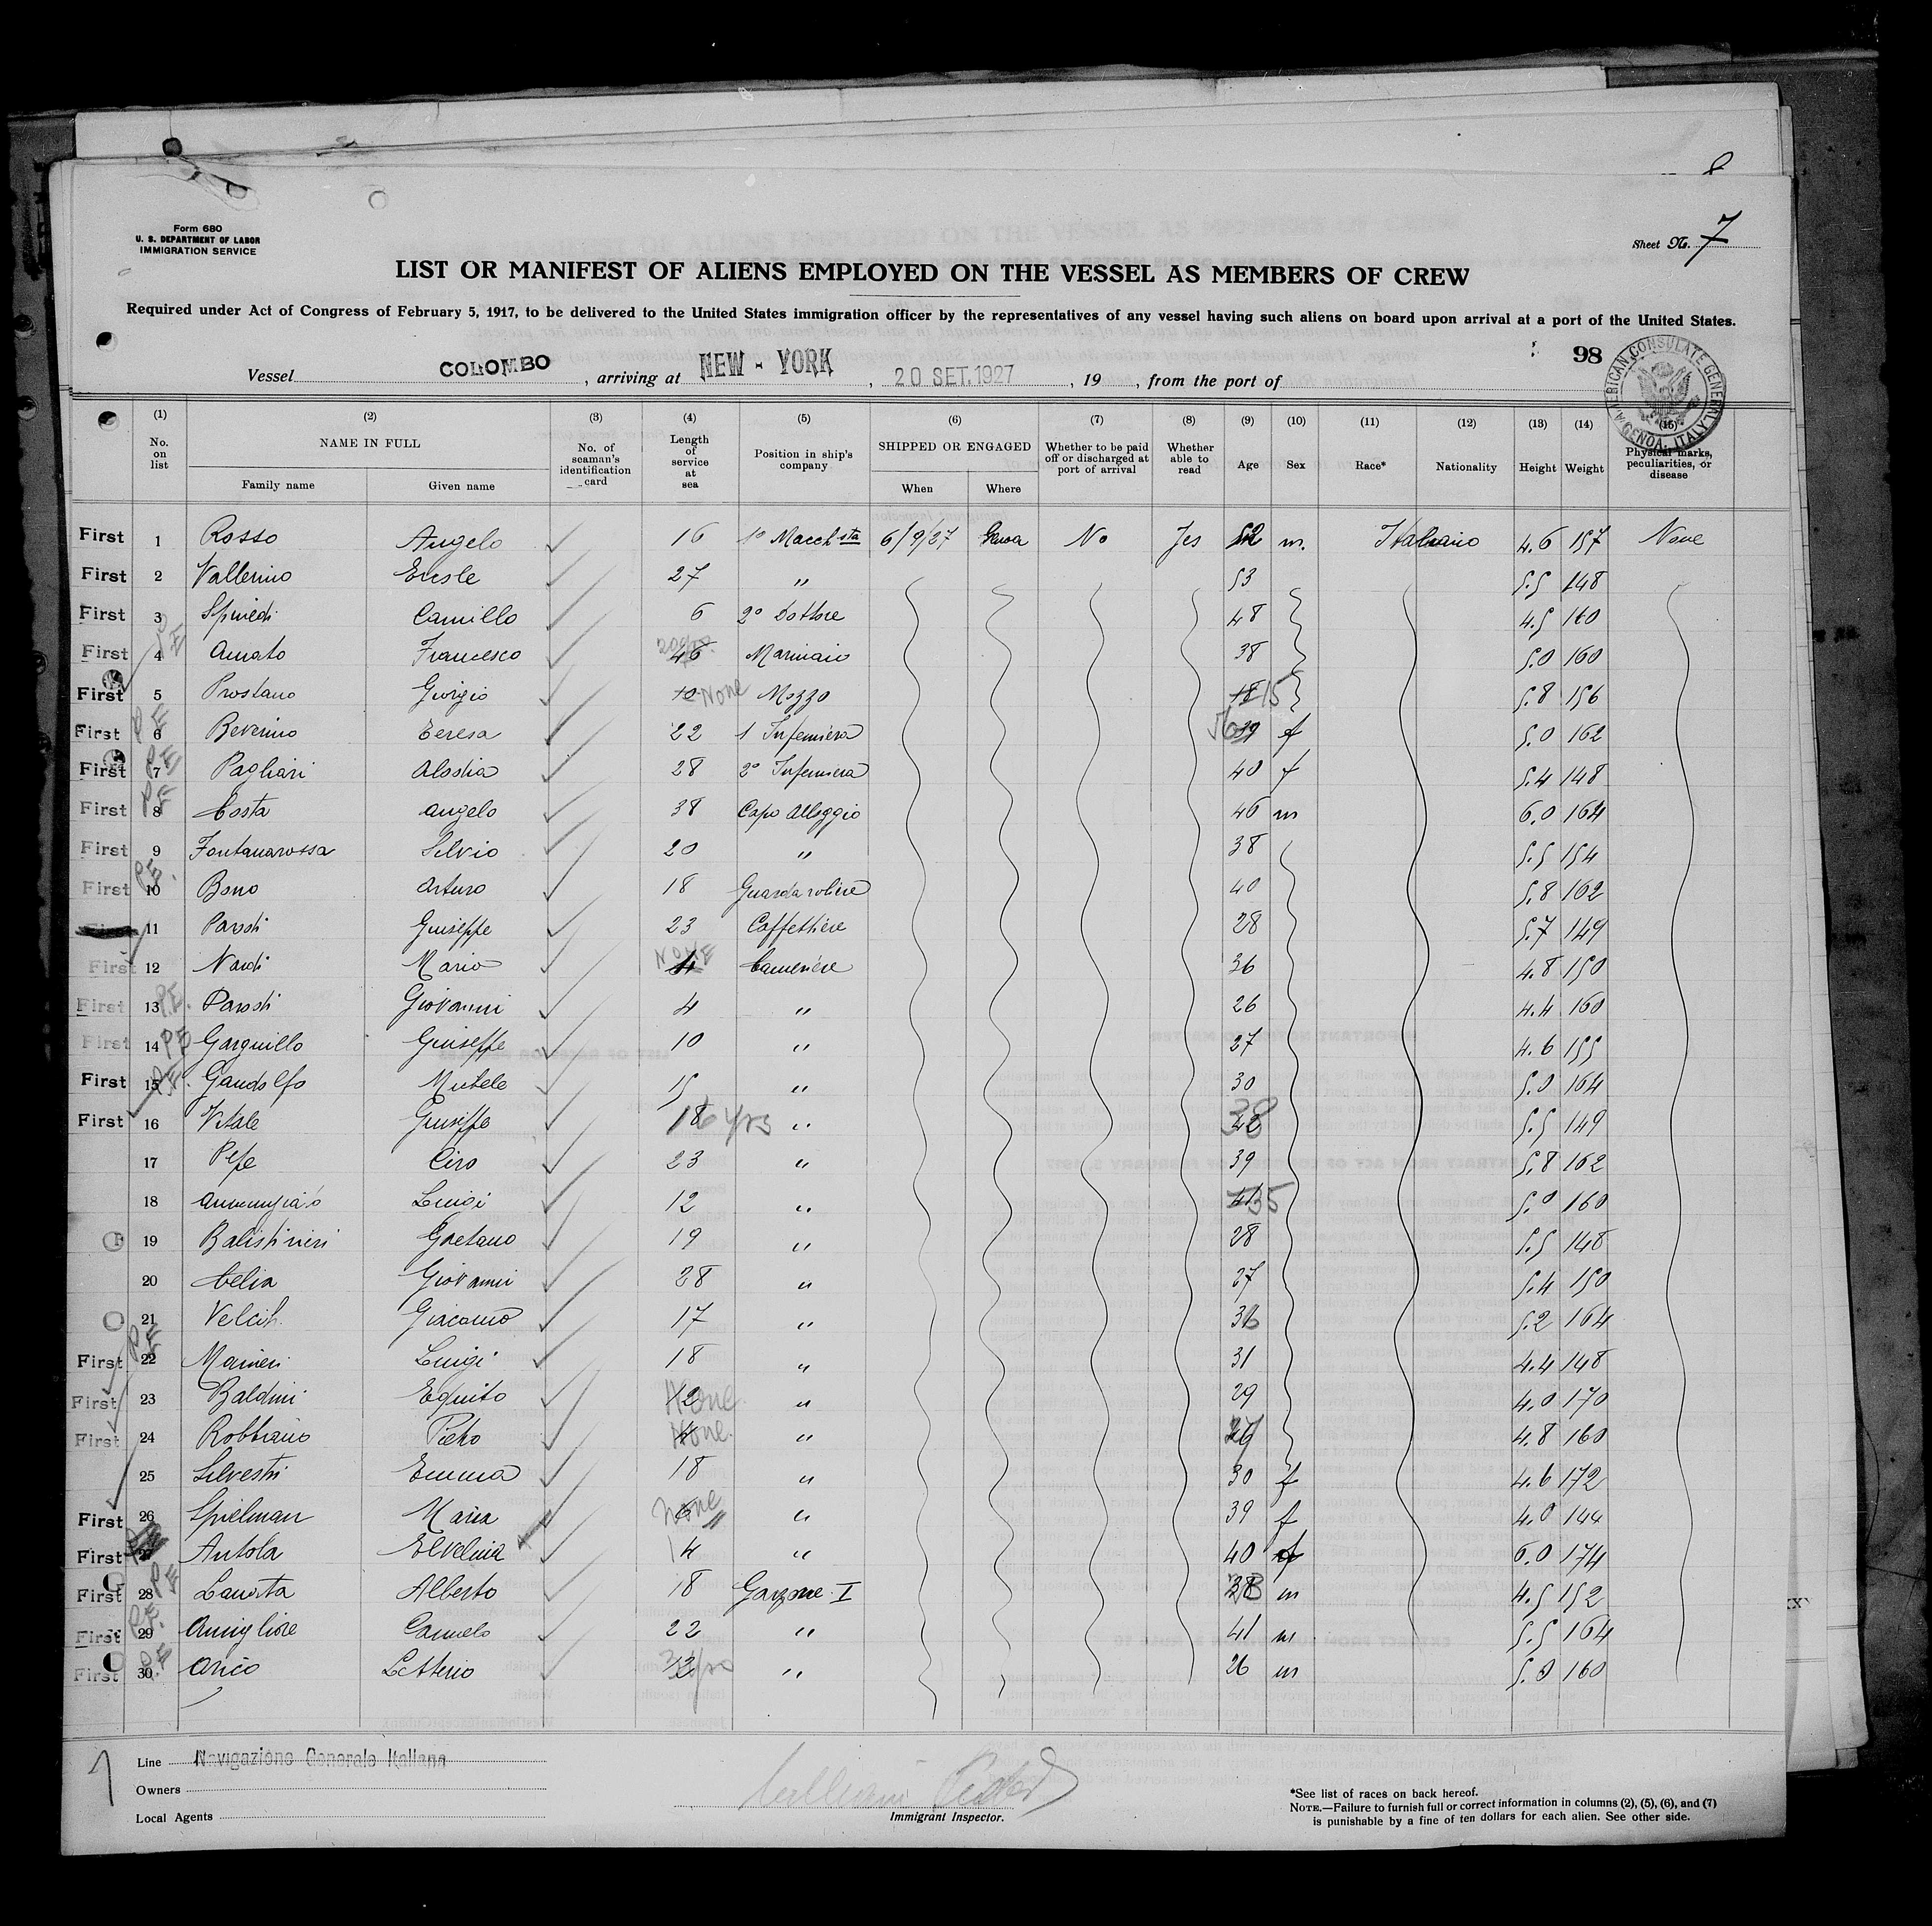 8
Form 680
U. S. DEPARTMENT OF LABOR
IMMIGRATION SERVICE
Sheet No. 7
LIST OR MANIFEST OF ALIENS EMPLOYED ON THE VESSEL AS MEMBERS OF CREW
Required under Act of Congress of February 5, 1917, to be delivered to the United States immigration officer by the representatives of any vessel having such aliens on board upon arrival at a port of the United States.
98
Vessel COLOMBO, arriving at NEW - YORK, 20 SET. 1927, 19 , from the port of
AMERICAN CONSULATE GENERAL GENOA, ITALY
(1) (2) (3) (4) (5) (6) (7) (8) (9) (10) (11) (12) (13) (14) (15)
No. on list NAME IN FULL No. of seaman's identification card Length of service at sea Position in ship's company SHIPPED OR ENGAGED Whether to be paid off or discharged at port of arrival Whether able to read Age Sex Race* Nationality Height Weight Physical marks, peculiarities, or disease
Family name Given name When Where
First 1 Rosso Angelo 16 1° Macchsta 6/9/27 Genoa No Yes 52 m. Italiano 4.6 157 None
First 2 Vallerino Ercole 27 " 53 5.5 148
First 3 Camillo 6 2° Dottore 48 4.5 160
First 4 Amato Francesco 46 Marinaio 38 5.0 160
First 5 Prostano Giorgio 10 None Mozzo 18 15 5.8 156
First 6 PE Beverino Teresa 22 1 Infermiera 39 f 5.0 162
First 7 PE Pagliari Alodia 28 2° Infermiera 40 f 5.4 148
First 8 PE Costa Angelo 38 Capo Alloggio 46 m 6.0 164
First 9 Fontanarossa Silvio 20 " 38 5.5 154
First 10 PE. Bono Arturo 18 Guardarobiere 40 5.8 162
11 Parodi Giuseppe 23 Caffettiere 28 5.7 149
First 12 Nardi Mario NONE Cameriere 36 4.8 150
First 13 P.E. Parodi Giovanni 4 " 26 4.4 160
First 14 PE Garguillo Giuseppe 10 " 27 4.6 155
First 15 PE. Gandolfo Michele 15 " 30 5.0 164
First 16 Vitale Giuseppe 18 6 yrs " 38 5.5 149
17 Pepe Ciro 23 " 39 5.8 162
18 Luigi 12 " 41 35 5.0 160
19 Balistrieri Gaetano 19 " 28 5.5 148
20 Celia Giovanni 28 " 27 5.4 150
21 Velcich Giacomo 17 " 36 5.2 164
First 22 PE Maineri Luigi 18 " 31 4.4 148
First 23 Baldini Equito 12 None " 29 4.0 170
First 24 Robbiano Pietro None " 4.8 160
25 Silvestri Emma 18 " 30 f 4.6 172
First 26 Spielman Maria None " 39 f 4.0 144
First 27 Antola Elvelina 4 " 40 f 6.0 174
First 28 PE Alberto 18 Garzone I 38 m 4.5 152
First 29 P.E. Amigliore Carmelo 22 " 41 m 5.5 164
First 30 P.F Arico Letterio " 26 m 5.0 160
Line Navigazione Generale Italiana
Owners
Local Agents
William
Immigrant Inspector.
*See list of races on back hereof.
NOTE.—Failure to furnish full or correct information in columns (2), (5), (6), and (7)
is punishable by a fine of ten dollars for each alien. See other side.